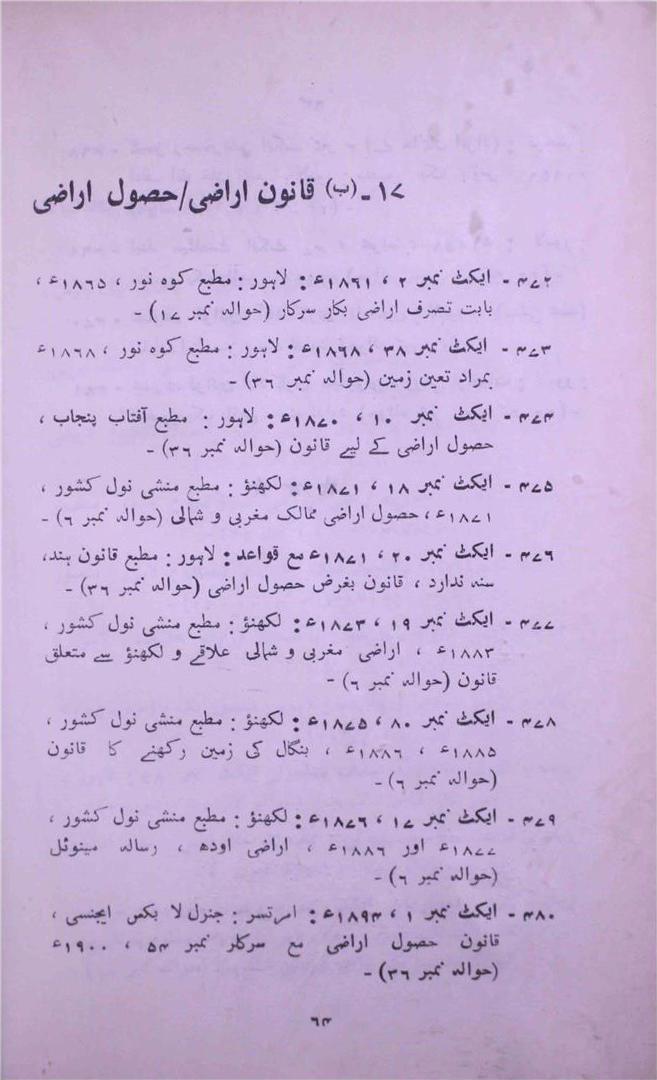 ۱۷ ۔ (ب) قانون اراضی/حصول اراضی
۴۷۲ ۔ ایکٹ نمبر ۲ ، ۱۸۶۱ء : لاہور : مطبع کوہ نور ، ۱۸۶۵ء ،
بابت تصرف اراضی بکار سرکار (حوالہ نمبر ۱۷) ۔
۴۷۳ ۔ ایکٹ نمبر ۳۸ ، ۱۸۶۸ء : لاہور : مطبع کوہ نور ، ۱۸۶۸ء
بمراد تعین زمین (حوالہ نمبر ۳۶) ۔
۴۷۴ ۔ ایکٹ نمبر ۱۰ ، ۱۸۷۰ء : لاہور : مطبع آفتاب پنجاب ،
حصول اراضی کے لیے قانون (حوالہ نمبر ۳۶) ۔
۴۷۵ ۔ ایکٹ نمبر ۱۸ ، ۱۸۷۱ء : لکھنؤ : مطبع منشی نول کشور ،
۱۸۷۱ء ، حصول اراضی ممالک مغربی و شمالی (حوالہ نمبر ۶) ۔
۴۷۶ ۔ ایکٹ نمبر ۲۰ ، ۱۸۷۱ء مع قواعد : لاہور : مطبع قانون ہند،
سنہ ندارد ، قانون بغرض حصول اراضی (حوالہ نمبر ۳۶) ۔
۴۷۷ ۔ ایکٹ نمبر ۱۹ ، ۱۸۷۳ء : لکھنؤ : مطبع منشی نول کشور ،
۱۸۸۳ء ، اراضی مغربی و شمالی علاقے و لکھنؤ سے متعلق
قانون (حوالہ نمبر ۶) ۔
۴۷۸ ۔ ایکٹ نمبر ۸۰ ، ۱۸۷۵ء : لکھنؤ : مطبع منشی نول کشور ،
۱۸۸۵ء ، ۱۸۸۶ء ، بنگال کی زمین رکھنے کا قانون
(حوالہ نمبر ۶) ۔
۴۷۹ ۔ ایکٹ نمبر ۱۷ ، ۱۸۷۶ء : لکھنؤ : مطبع منشی نول کشور ،
۱۸۷۷ء اور ۱۸۸۶ء ، اراضی اودھ ، رسالہ مینوئل
(حوالہ نمبر ۶) ۔
۴۸۰ ۔ ایکٹ نمبر ۱ ، ۱۸۹۴ء : امرتسر : جنرل لا بکس ایجنسی ،
قانون حصول اراضی مع سرکلر نمبر ۵۴ ، ۱۹۰۰ء
(حوالہ نمبر ۳۶) ۔
۶۴